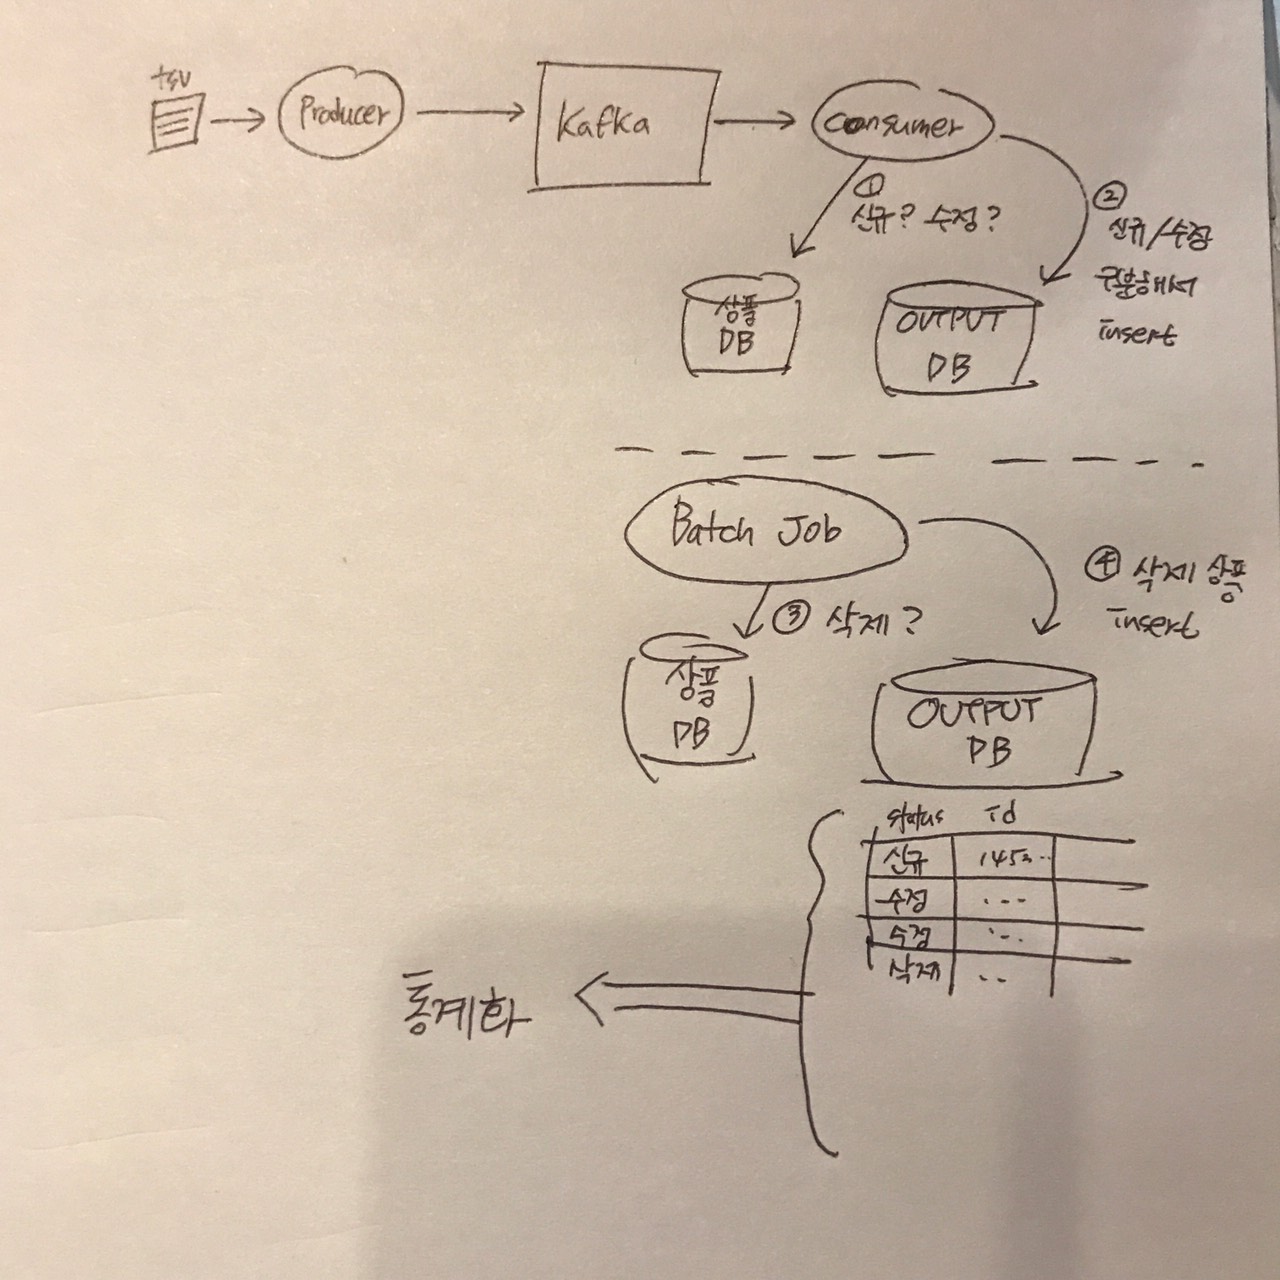 tsv
Producer
Kafka
Consumer
①
신규? 수정?
②
신규/수정
구분해서
insert
상품
DB
OUTPUT
DB
Batch Job
③ 삭제?
④ 삭제 상품
insert
상품
DB
OUTPUT
DB
status id
신규 1452..
수정 ...
수정 ...
삭제 ..
통계화